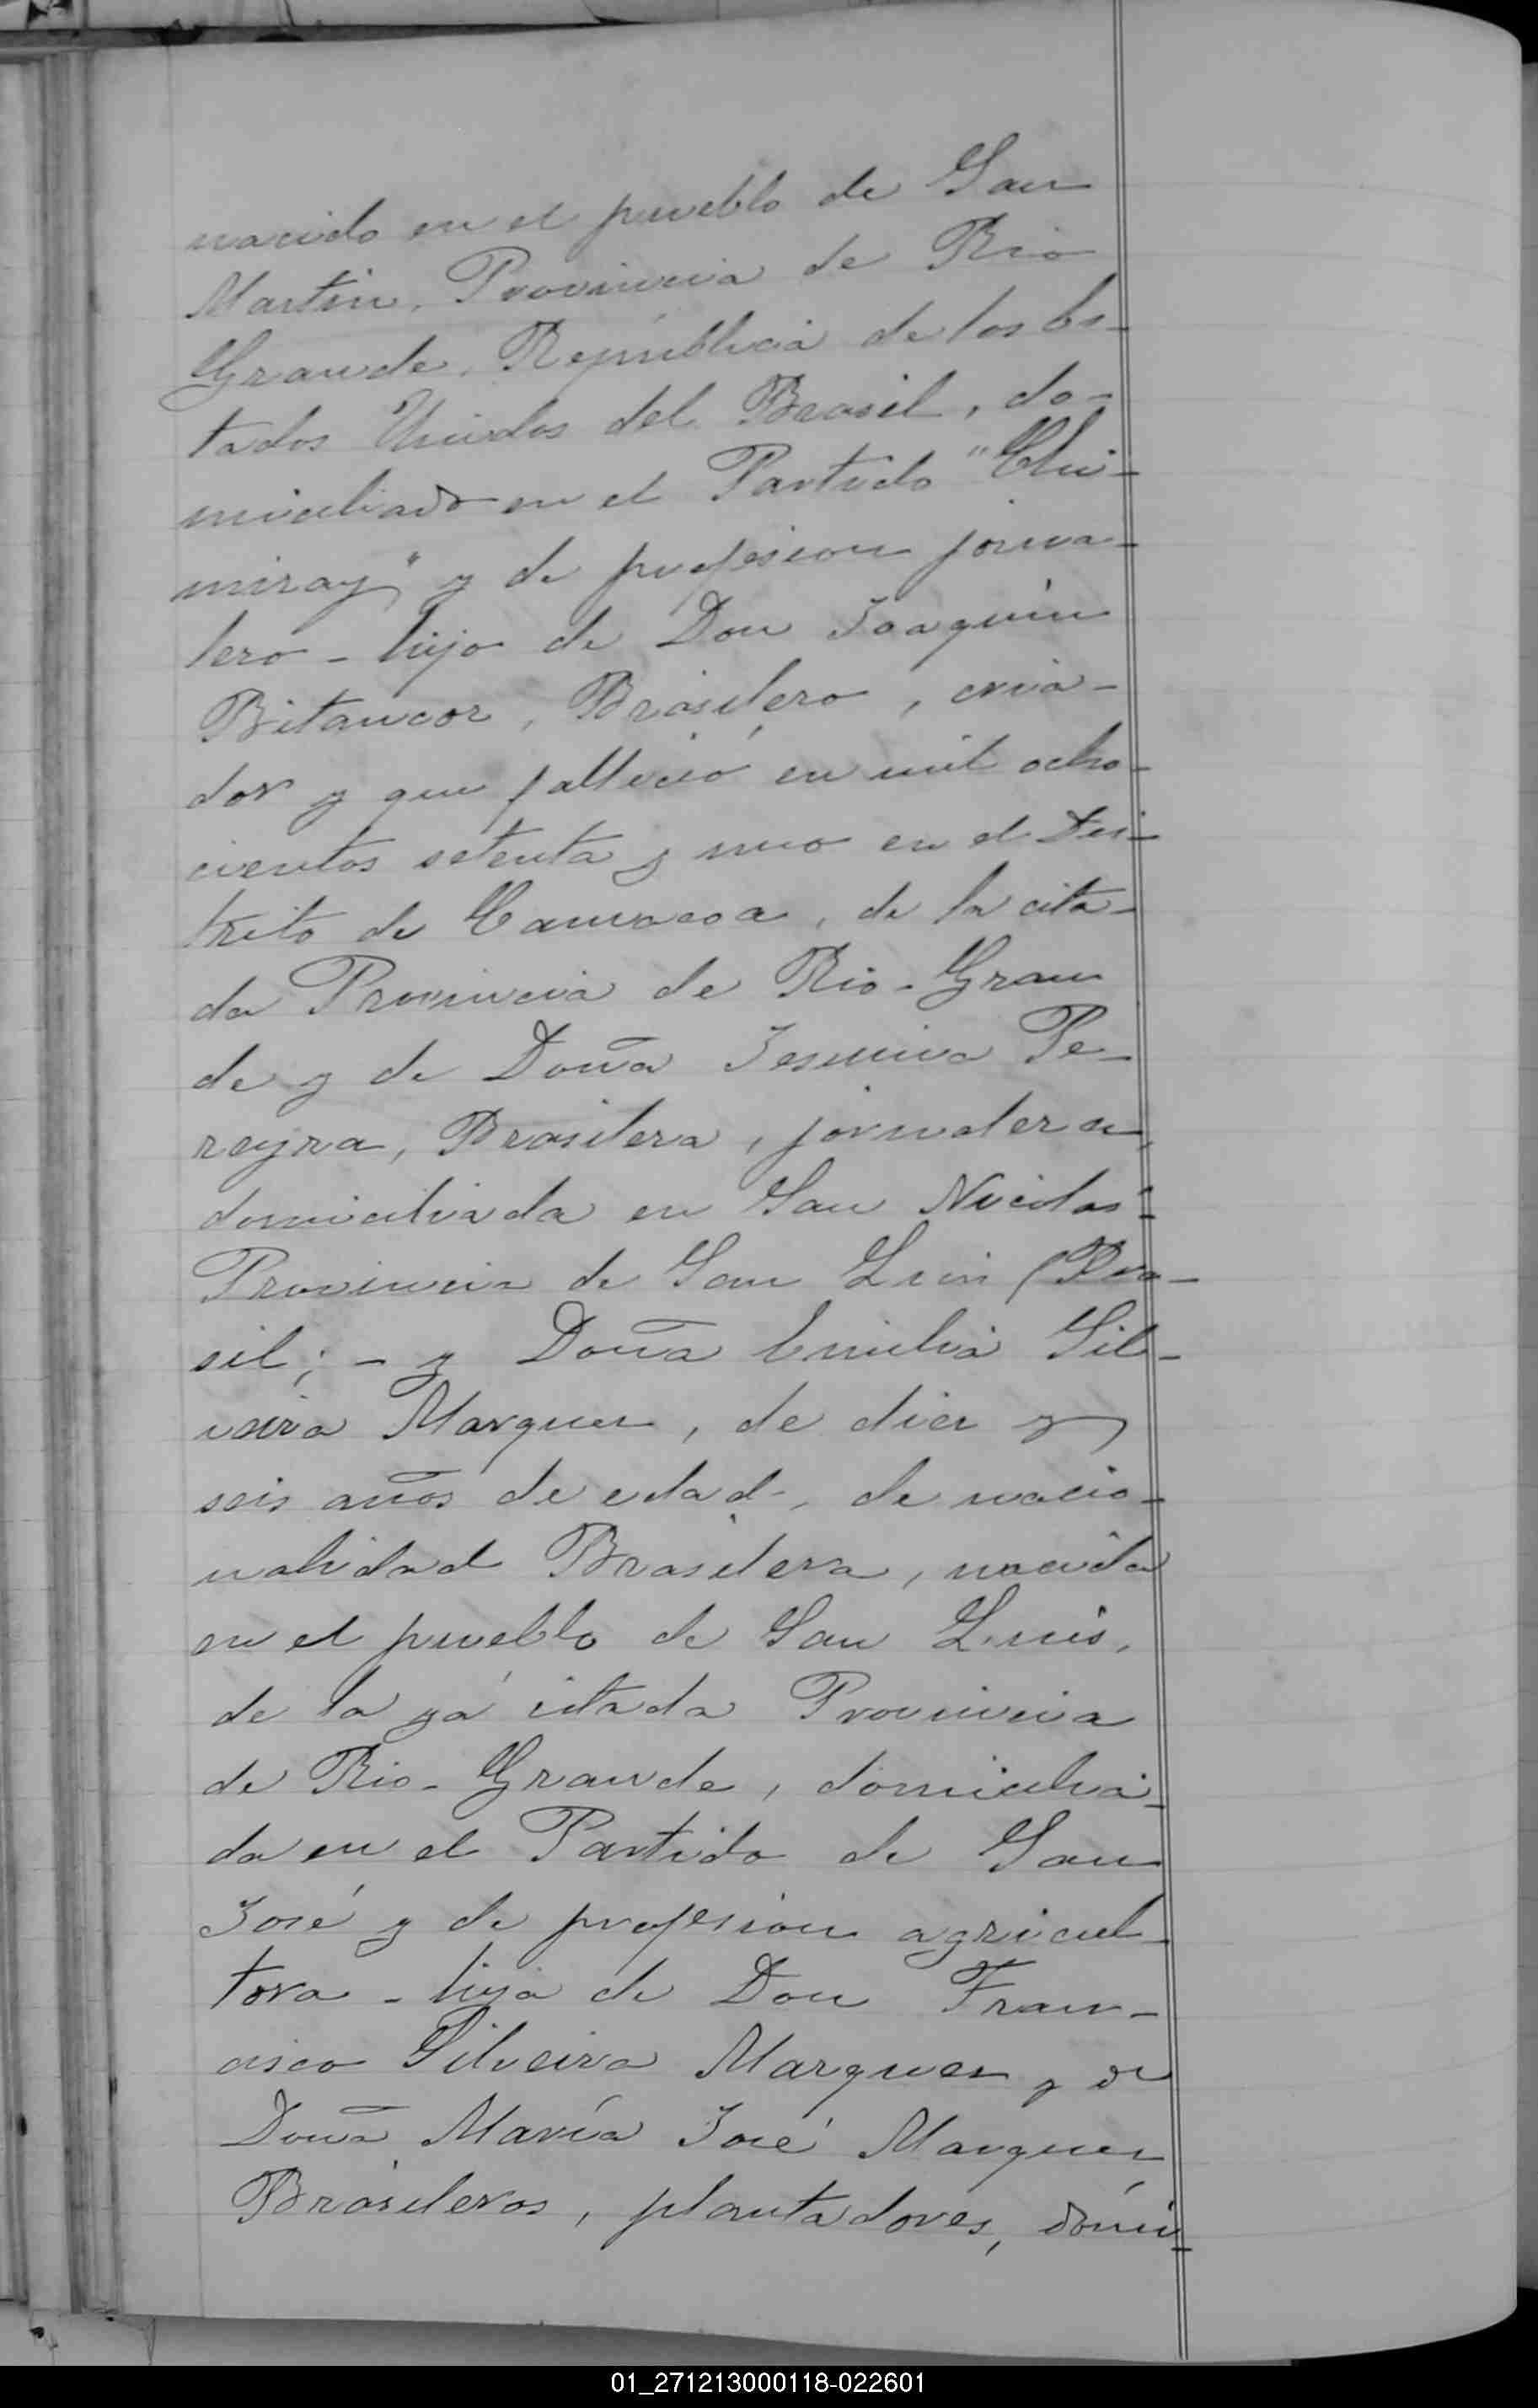 nacido en el pueblo de San
Martin, Provincia de Rio
Grande, República de los Es-
tados Unidos del Brasil, do-
miciliado en el Partido "Chi-
miray" y de profesion jorna-
lero - hijo de Don Joaquín
Bitancor, Brasilero, cria-
dor y que falleció en mil ocho-
cientos setenta y uno en el Dis-
trito de Camacoa, de la cita-
da Provincia de Rio-Gran
de y de Doña Jesmina Pe-
reyra, Brasilera, jornalera,
domiciliada en San Nicolas-
Provincia de San Luis (Bra-
sil; - y Doña Emilia Sil-
veira Marques, de diez y
seis años de edad, de nacio-
nalidad Brasilera, nacida
en el pueblo de San Luis,
de la yá citada Provincia
de Rio-Grande, domicilia-
da en el Partido de San
José y de profesion agricul-
tora - hija de Don Fran-
cisco Silveira Marques y de
Doña María José Marques
Brasileros, plantadores, domi-
01_271213000118-022601